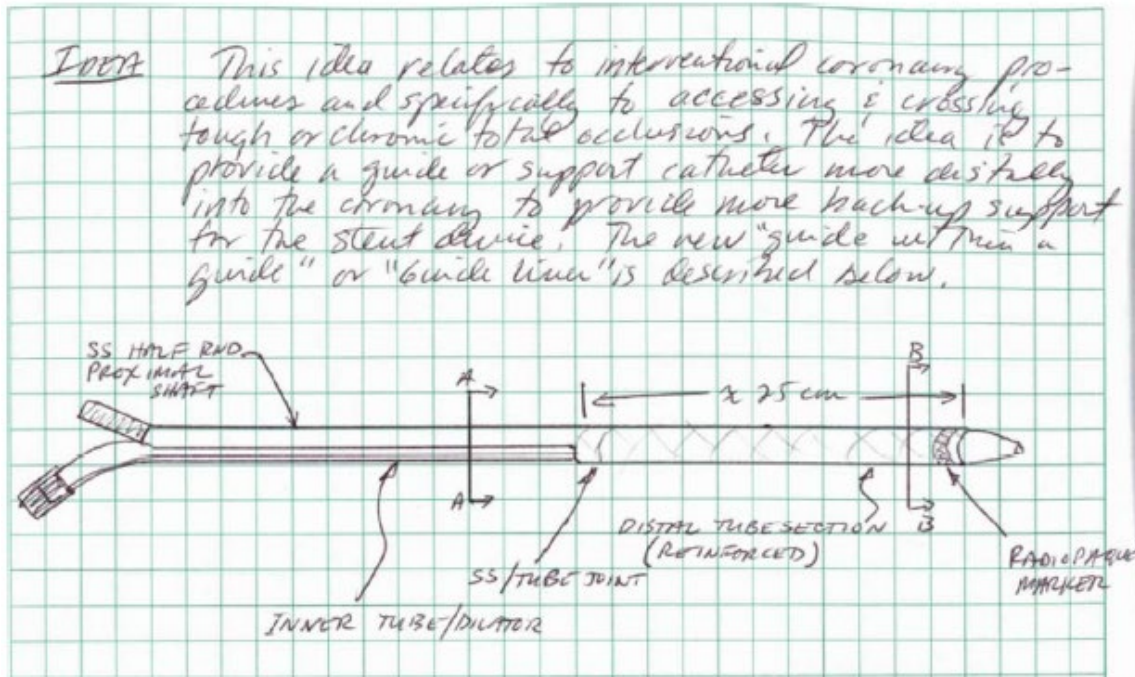 IDEA This idea relates to interventional coronary pro-
cedures and specifically to accessing & crossing
tough or chronic total occlusions. The idea is to
provide a guide or support catheter more distally
into the coronary to provide more back-up support
for the stent device. The new "guide within a
guide" or "Guide Liner" is described below.
SS HALF RND
PROXIMAL
SHAFT
A
B
≈ 25 cm
A
B
DISTAL TUBE SECTION
(REINFORCED)
SS/TUBE JOINT
RADIOPAQUE
MARKER
INNER TUBE/DILATOR